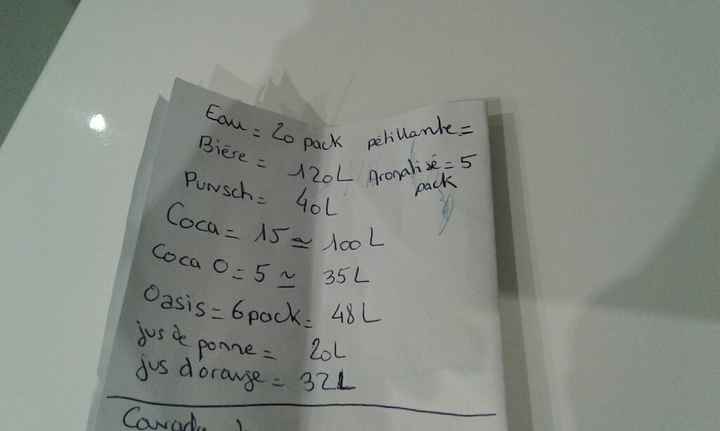 Eau = 20 pack pétillante =
Bière = 120L Aromatisé = 5 pack
Punsch = 40L
Coca = 15 ≃ 100 L
Coca 0 = 5 ≃ 35 L
Oasis = 6 pack = 48 L
jus de pomme = 20L
jus d'orange = 32L